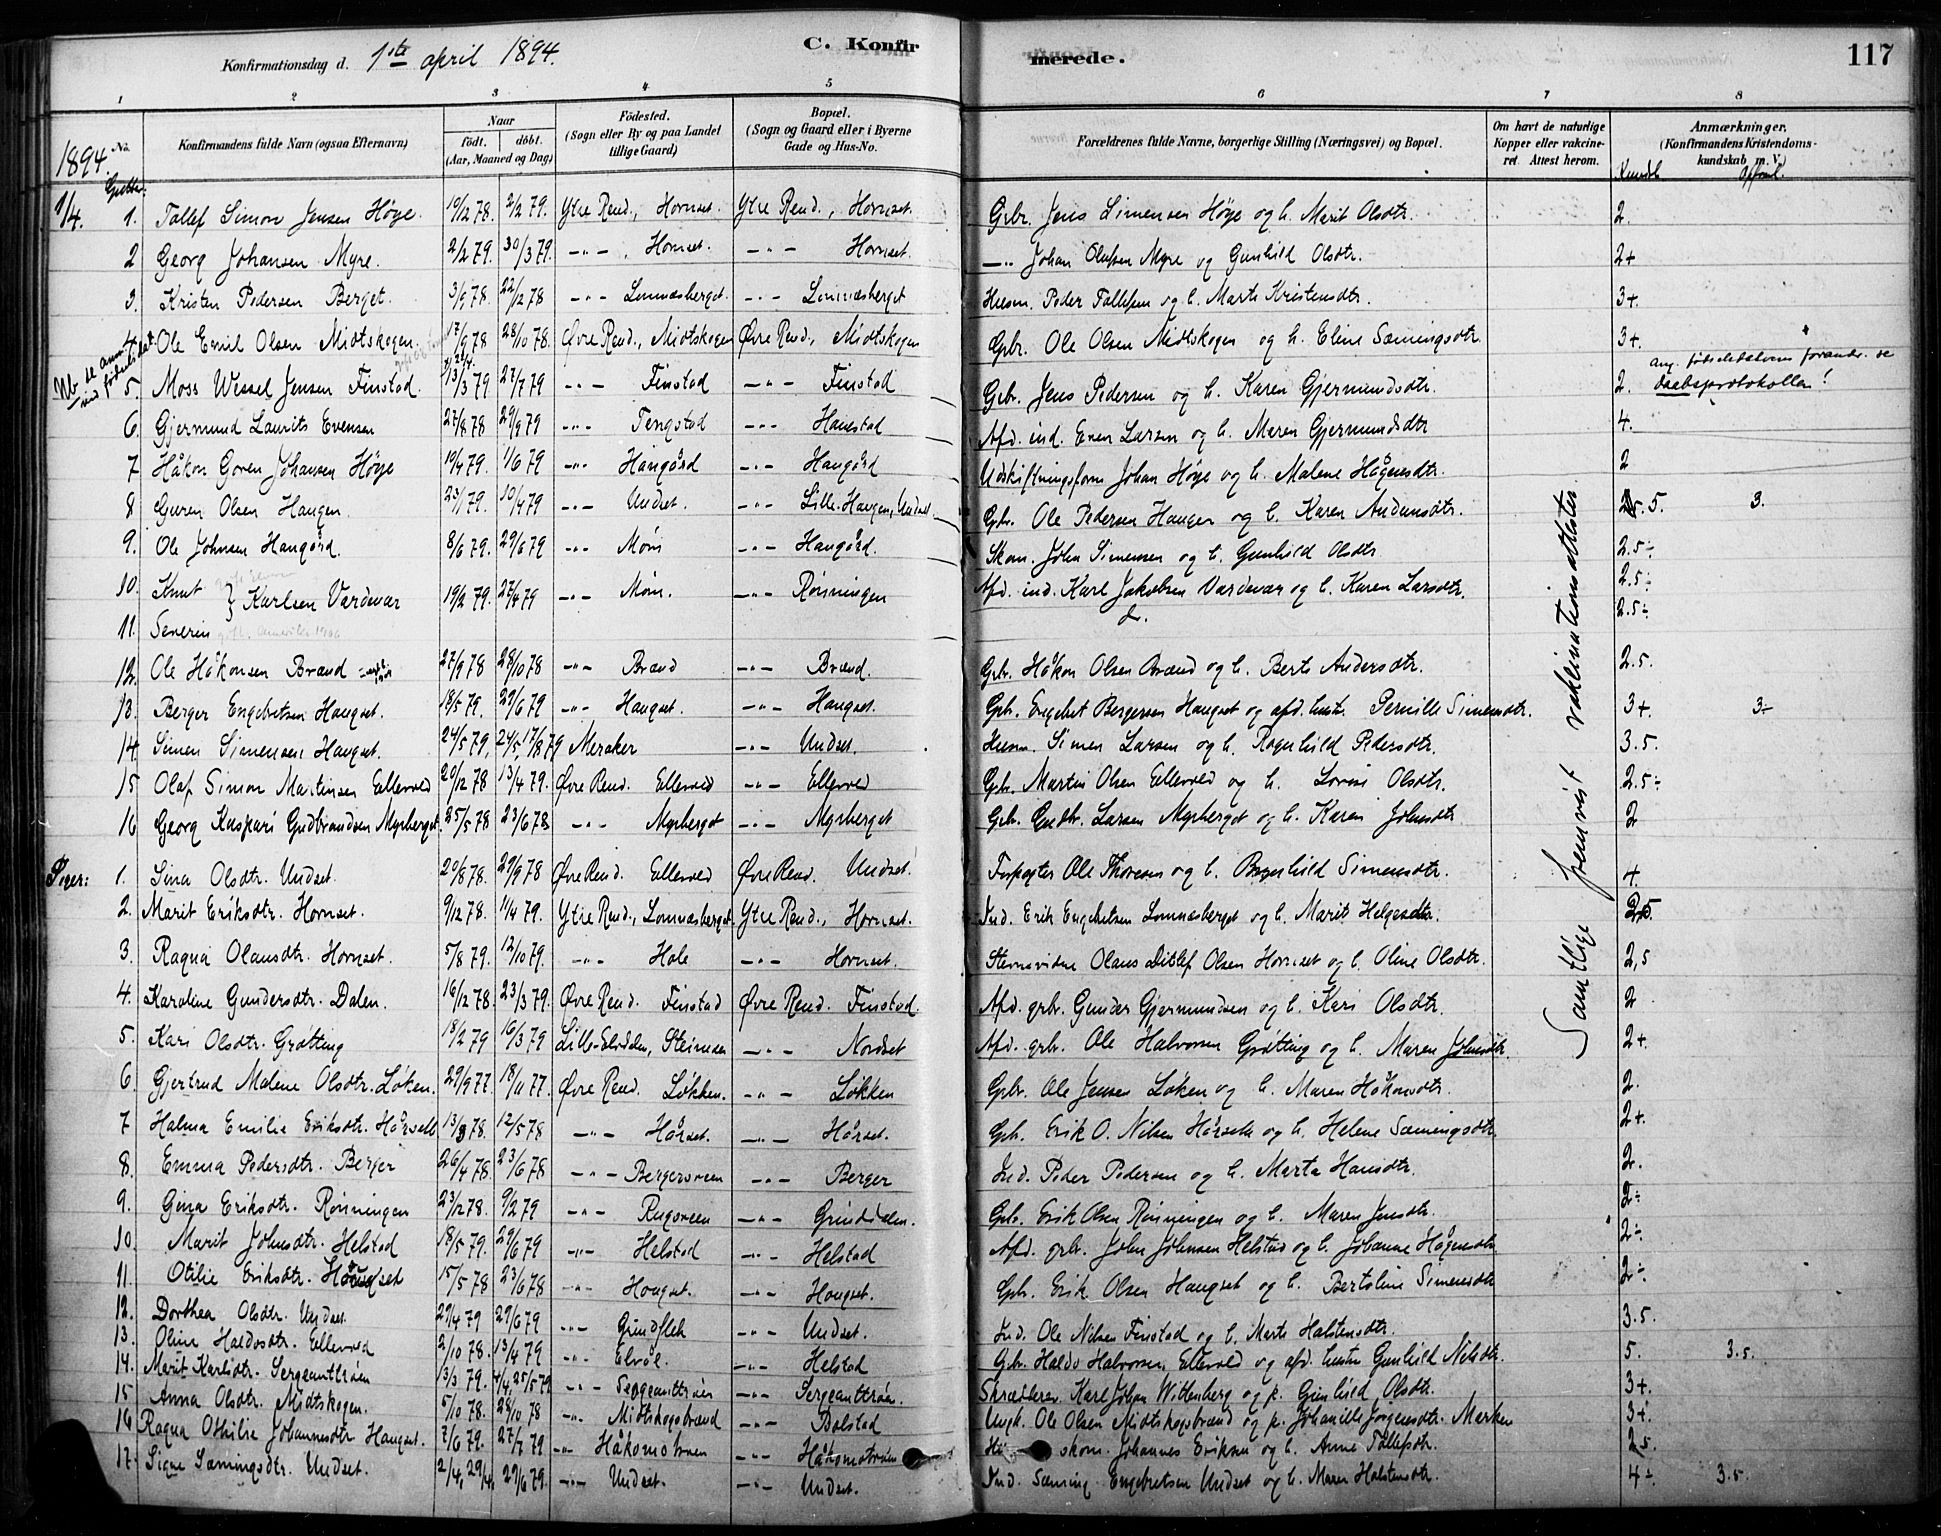 C. Konfirmerede.
117
Konfirmationsdag d. 1ste april 1894.
1 2 3 4 5 6 7 8
No. Konfirmandens fulde Navn (ogsaa Efternavn) Naar født. døbt. (Aar, Maaned og Dag) Fødested. (Sogn eller By og paa Landet tillige Gaard) Bopæl. (Sogn og Gaard eller i Byerne Gade og Hus-No. Forældrenes fulde Navne, borgerlige Stilling (Næringsvei) og Bopæl. Om havt de naturlige Kopper eller vakcineret. Attest herom. Anmærkninger. (Konfirmandens Kristendomskundskab m. V.)
1894. Gutter.
1/4. 1. Tallef Simon Jensen Høye. 10/12 78. 2/2 79. Ytre Rend., Hornset. Ytre Rend., Hornset. Gbr. Jens Simensen Høye og h. Marit Olsdtr. 2.
2 Georg Johansen Myre. 2/2 79. 30/3 79. -"- , Hornset. -"- Hornset. -"- Johan Olafsen Myre og Gunhild Olsdtr. 2+
3. Kristen Pedersen Berget. 3/9 78. 22/12 78 -"- Lomnæsberget. -"- Lomnæsberget Husm. Peder Tallefsen og h. Marte Kristensdtr. 3+.
4. Ole Emil Olsen Midtskogen. 17/9 78 28/10 78. Øvre Rend., Midtskogen Øvre Rend., Midtskogen Gbr. Ole Olsen Midtskogen og h. Eline Sæmingsdtr. 3+.
Nb. se anm. ved fødselsdat.
5. Moss Wessel Jensen Finstad. 13/3 79 27/7 79 -"- Finstad -"- Finstad Gbr. Jens Pedersen og h. Karen Gjermundsdtr. 2. ang. fødselsdatoens forandr. se daabsprotokollen!
6. Gjermund Laurits Evensen 27/8 78 29/9 79 -"- Fengstad -"- Hanestad Afd. ind. Even Larsen og h. Maren Gjermundsdtr 4.
7 Håkon Goren Johansen Høye 10/4 79. 1/6 79 -"- Haugård -"- Haugård Udskiftningsform Johan Høye og h. Malene Hågensdtr. 2
8 Guren Olsen Haugen. 23/1 79. 10/4 79 -"- Undset. -"- Lille-Haugen, Undset. Gbr. Ole Pedersen Haugen og h. Karen Audunsdtr. 5. 3.
9. Ole Johnsen Haugård. 8/6 79. 29/6 79 -"- Møri -"- Haugård. Skom. John Simensen og h. Gunhild Olsdtr 2.5÷
10. Knut } Karlsen Vardevar 19/2 79. 27/4 79 -"- Møri. -"- Rønningen Afd. ind. Karl Jakobsen Vardevar og h. Karen Larsdtr. 2.5÷
11. Severin 2.5÷
12. Ole Håkonsen Brænd 27/9 78 28/10 78 -"- Brænd -"- Brænd. Gbr. Håkon Olsen Brænd og h. Berte Andersdtr. 2.5.
13. Berger Engebretsen Haugset. 18/5 79. 29/6 79 -"- Haugset. -"- Haugset. Gbr. Engebret Bergersen Haugset og afd. hustr. Pernille Simensdtr. 3+. 3÷
14. Simen Simensen Haugset. 24/5 79. 24/5, 17/8 79 Meraker -"- Undset. Husm. Simen Larsen og h. Ragnhild Pedersdtr. 3.5.
15 Olaf Simon Martinsen Ellevold 20/12 78 13/4 79. Øvre Rend. Ellevold -"- Ellevold Gbr. Martin Olsen Ellevold og h. Lovise Olsdtr. 2.5÷
16 Georg Kaspari Gudbrandsen Myrberget. 25/5 78 23/6 78 -"- Myrberget -"- Myrberget Gbr. Gudbr. Larsen Myrberget og h. Karen Johnsdtr 2
Piger: 1. Lina Olsdtr. Undset. 20/8 78. 29/9 78 Øvre Rend. Ellevold Øvre Rend. Undset. Forpagter Ole Thoresen og h. Ragnhild Simensdtr. 4.
2. Marit Eriksdtr. Hornset. 9/12 78. 11/4 79. Ytre Rend., Lomnæsberget. Ytre Rend., Hornset. Ind. Erik Engebretsen Lomnæsberget og h. Marit Helgesdtr. 2.5.
3. Ragna Olausdtr. Hornset. 5/8 79. 12/10 79. -"- Hole -"- Hornset. Stensvidne Olaus Ditlef Olsen Hornset og h. Oline Olsdtr. 2,5
4. Karoline Gundersdtr. Dalen. 16/12 78. 23/3 79. Øvre Rend. Finstad Øvre Rend. Finstad. Afd. gbr. Gunder Gjermundsen og h. Kari Olsdtr. 2
5. Kari Olsdtr. Grøtting 18/2 79 16/3 79 Lille-Elvdalen, Steimoen -"- Nordset Afd. gbr. Ole Halvorsen Grøtting og h. Maren Johnsdtr. 2+.
6. Gjertrud Malene Olsdtr. Løken. 29/9 77. 18/11 77. Øvre Rend. Løkken. -"- Løkken Gbr. Ole Jensen Løken og h. Maren Håkonsdtr. 2.
7 Halma Emilie Eriksdtr. Hårseth 13/3 78. 12/5 78 -"- Hårset. -"- Hårset. Gbr. Erik O. Nilsen Hårseth og h. Helene Sæmingsdtr. 2+.
8. Emma Pedersdtr. Berger 26/4 78. 23/6 78 -"- Bergersveen -"- Berger Ind. Peder Pedersen og h. Marta Hansdtr. 2.
9. Gina Eriksdtr. Rønningen 23/12 78. 9/2 79 -"- Rugsveen -"- Grindalen. Gbr. Erik Olsen Rønningen og h. Maren Jensdtr. 2÷
10. Marit Johnsdtr. Helstad 18/5 79. 29/6 79 -"- Helstad -"- Helstad Afd. gbr. John Johnsen Helstad og h. Johanne Hågensdtr 2÷
11. Otilie Eriksdtr. Haugset 15/5 78 23/6 78 -"- Haugset. -"- Haugset. Gbr. Erik Olsen Haugset og h. Bertoline Simensdtr 2÷
12. Dorthea Olsdtr. Undset. 29/4 79 29/6 79 -"- Grindflek -"- Undset. Ind. Ole Nilsen Finstad og h. Marte Halstensdtr. 3.5.
13. Oline Haldosdtr. Ellevold 2/10 78. 13/4 79 -"- Elvål. -"- Helstad Gbr. Haldo Halvorsen Ellevold og afd. hustr. Gunhild Nilsdtr. 5. 3.5.
14. Marit Karlsdtr. Sergeanttrøen 13/3 79. 4/4, 25/5 79 -"- Sergeanttrøen -"- Sergeanttrøen. Skrædderen Karl Johan Wittenberg og p. Gunhild Olsdtr. 3+.
15 Anna Olsdtr. Midtskogen. 5/10 78. 28/10 78 -"- Midtskogsbrænd -"- Bolstad Ungk. Ole Olsen Midtskogsbrænd og p. Johanille Jørgensdtr. Marken 3+.
16 Ragna Othilie Johannesdtr Haugset. 7/6 79. 27/7 79 -"- Håkonstrøen -"- Håkonstrøen skom. Johannes Eriksen og h. Anne Tallefsdtr. 2.5.
17. Signe Sæmingsdtr. Undset. 2/4, 29/4 29/6 79. -"- Undset. -"- Undset. Ind. Sæming Engebretsen Undset og h. Maren Halstensdtr. 4÷ 3.5.
Samtlige fremvist vakcinationsattester.